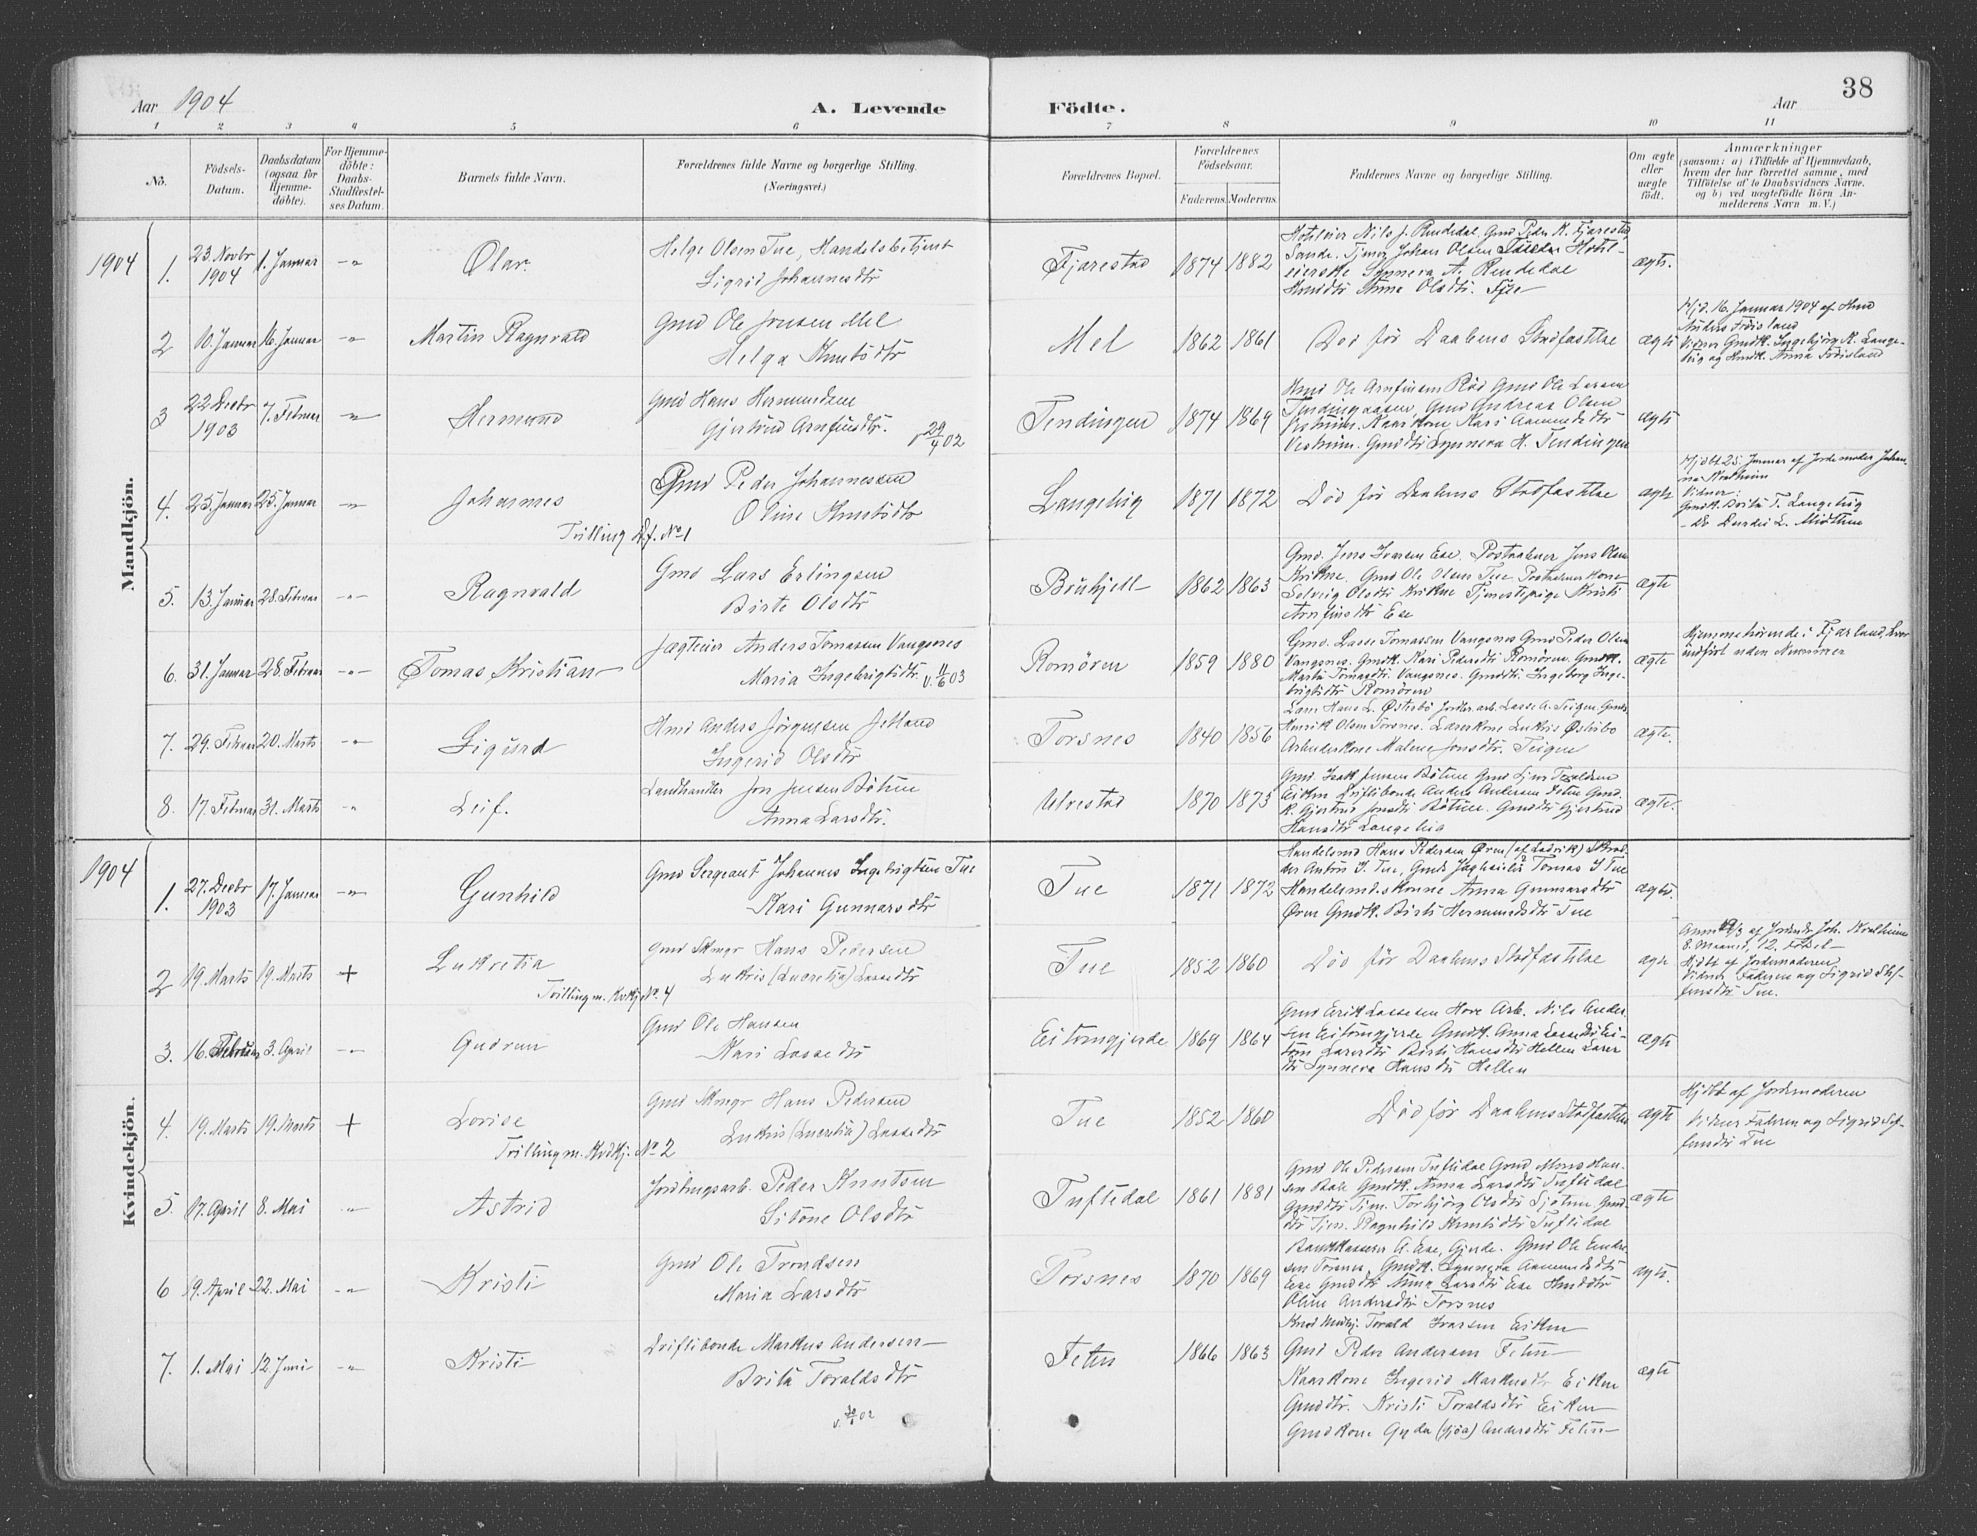 Aar 1904
A. Levende Födte.
Aar
38
1 2 3 4 5 6 7 8 9 10 11
No.
Födsels-Datum.
Daabsdatum (ogsaa for Hjemme-döbte).
For Hjemme-döbte: Daabs-Stadfæstel-ses Datum.
Barnets fulde Navn.
Forældrenes fulde Navne og borgerlige Stilling. (Næringsvei.)
Forældrenes Bopæl.
Forældrenes Födselsaar.
Faderens. Moderens.
Faddernes Navne og borgerlige Stilling.
Om ægte eller uægte födt.
Anmærkninger
(saasom: a) i Tilfælde af Hjemmedaab, hvem der har forrettet samme, med Tilföielse af to Daabsvidners Navne, og b) ved uægtefödte Börn An-melderens Navn m. V.)
Mandkjön.
1904
1. 23. Novbr 1904 1. Januar -"- Olav.
Helge Olsen Tue, Handelsbetjent
Sigrid Johannesdtr
Fjærestad 1874 1882
Nils J. Rendedal, Gmd Peder K. Fjærestad,
Johan Olsen
Synneva A. Rendedal
Anna Olsdtr.
ægte.
2 10. Januar 16. Januar -"- Martin Ragnvald
Gmd Ole Jensen Mel
Helga Knutsdtr
Mel 1862 1861 Død før Daabens Stadfæstelse ægte
Hjd. 16. Januar 1904 af Kmd
Anders Frøisland
Vidner Gmdk. Ingebjørg K. Lange-
big og Kmdk. Anna Frøisland
3 22 Decbr 1903 7. Februar -"- Hermund
Gmd Hans Hermundsen
Gjertrud Arnfinsdtr. v 29/4 02
Tendingen 1874 1869
Kmd Ole Arnfinsen Rød Gmd Ole Larsen
Tendingaasen, Gmd Andreas Olsen
Vestrum. Kaarkone Kari Aamundsdtr
Vestrum. Gmddtr Synneva H. Tendingen
ægte
4. 25. Januar 25. Januar -"- Johannes
Tvilling D.f. No 1
Gmd Peder Johannessen
Oline Knutsdtr
Langebig 1871 1872 Død før Daabens Stadfæstelse ægte
Hjdbt 25. Januar af Jordemoder Johan-
Vidner:
Gmdk. Brita T. Langebig
5. 13. Januar 28. Februar -"- Ragnvald
Gmd Lars Erlingsen
Birte Olsdtr
Brukjell 1862 1863
Gmd. Jens Ivarsen Ese. Postaabner Jens Olsen
Kvikne. Gmd Ole Olsen Tue Postaabner kone
Solveig Olsdtr Kvikne Tjenestepige Kristi
Arnfinsdtr Ese
ægte
6. 31. Januar 28. Februar -"- Tomas Kristian
Jægteier Anders Tomassen Vangsnes
Maria Ingebrigtsdtr. v. 11/6 03
Romøren 1859 1880
Gmd. Lasse Tomassen Vangsnes Gmd Peder Olsen
Vangsnes. Gmdk. Kari Pedersdtr Romøren. Gmdk.
Marta Tomasdtr. Vangsnes. Gmddtr. Ingeborg Inge-
brigtsdtr Romøren
ægte
Hjemmehørende i Fjærland, hvor
indført uden Nummer
7. 29. Februar 20. Marts -"- Sigurd
Hmd Anders Jørgensen Jetland
Ingerid Olsdtr
Torsnes 1840 1856
Lærer Hans L. Østerbø Jordbr. arb. Lasse A. Teigen. Gmds.
Henrik Olsen Torsnes. Lærerkone Lukris Østerbø
Arbeiderkone Malene Jonsdtr. Teigen
ægte.
8. 17. Februar 31. Marts -"- Leif.
Landhandler Jon Jensen Bøtun
Anna Larsdtr.
Ulvestad 1870 1873
Gmd. Isak Jensen Bøtun Gmd
Eiken Driftsbonde Anders Andersen Feten Gmd.
K. Gjertrud Jonsdtr Bøtun. Gmddtr Gjertrud
Hansdtr Langebig
ægte.
Kvindekjön.
1904
1. 27. Decbr 1903 17. Januar -"- Gunhild
Gmd Sergeant Johannes Ingebrigtsen Tue
Kari Gunnarsdtr
Tue 1871 1872
Handelsmd Hans Pedersen Øren (af Ladvik) Skræd-
der Anton I. Tue, Gmds Tomas I Tue
Handelsmdskone Anna Gunnarsdtr
Øren Gmdk. Birte Hermundsdtr Tue
ægte.
2 19. Marts 19. Marts + Lukretia
Trilling m. Kvkj No. 4
Gmd Skmgr Hans Pedersen
Lukris (Lucretia) Lassedtr
Tue 1852 1860 Død før Daabens Stadfæstelse ægte
Anm 19/3 af Jordmdr. Joh.
8. Maaned, 12. Fødsel
Hjdbt af Jordemoderen
Vidner Faderen og Sigrid Stef-
fensdtr Tue.
3. 16. Februar 3. April -"- Gudrun
Gmd Ole Hansen
Kari Lassedtr
Eitorngjerde 1869 1864
Gmd Erik Lassesen Hove Arb. Nils Ander
sen Eitorngjerde Gmdk. Anna Lassedtr Ei-
torn Larsdtr Birte Hansdtr Hellen
Synneva Hansdtr Hellen
ægte
4. 19. Marts 19. Marts + Lovise
Trilling m. Kvdkj. No 2
Gmd Skmgr Hans Pedersen
Lukris (Lucretia) Lassedtr
Tue 1852 1860 Død før Daabens Stadfæstelse ægte
Hjdbt af Jordemoderen
Vidner Faderen og Sigrid Stef-
fensdtr Tue
5. 17. April 8. Mai -"- Astrid
Jordbrugsarb. Peder Knutsen
Sivone Olsdtr
Tuftedal 1861 1881
Gmd Ole Pedersen Tuftedal Gmd Mons Han-
sen Gmdk. Anna Larsdtr Tuftedal
Gmddtr Tjen. Torbjørg Olsdtr Sjøtun Gmd-
dtr Tjen. Ragnhild Knutsdtr Tuftedal
ægte
6 19. April 22. Mai -"- Kristi
Gmd Ole Trondsen
Maria Larsdtr
Torsnes 1870 1869
Bankkasserer A. Ese, Gjerde. Gmd Ole Endre
sen Torsnes, Gmdk. Synneva Aamundsdtr
Ese Gmddtr Anna Larsdtr Ese Kmddtr
Oline Andersdtr Torsnes
ægte.
7. 1. Mai 12. Juni -"- Kristi
Driftsbonde Markus Andersen
Brita Toraldsdtr
Feten 1866 1863
Torald Ivarsen Eiken
Gmd Peder Andersen Feten
Kaarkone Ingerid Markusdtr Eiken
Gmddtr. Kristi Toraldsdtr Eiken
Gmdkone Gyda (Gjøa) Andersdtr Feten
ægte